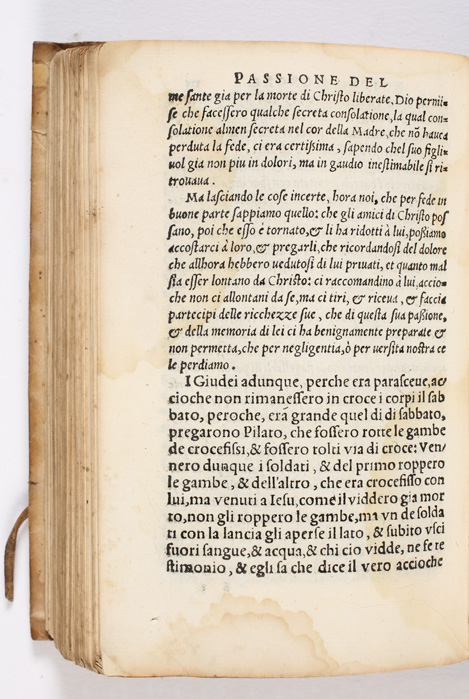 PASSIONE DEL
me sante gia per la morte di Christo liberate. Dio permis=
se che facessero qualche secreta consolatione, la qual con=
solatione almen secreta nel cor della Madre, che nõ hauea
perduta la fede, ci era certißima, sapendo chel suo figli=
uol gia non piu in dolori, ma in gaudio inestimabile si ri=
trouaua.
Ma lasciando le cose incerte, hora noi, che per fede in
buone parte sappiamo quello: che gli amici di Christo pos
sano, poi che esso è tornato, & li ha ridotti à lui, poßiamo
accostarci à loro, & pregarli, che ricordandosi del dolore
che allhora hebbero uedutosi di lui priuati, et quanto mal
sia esser lontano da Christo: ci raccomandino à lui, accio=
che non ci allontani da se, ma ci tiri, & riceua, & faccia
partecipi delle ricchezze sue, che di questa sua paßione,
& della memoria di lei ci ha benignamente preparate &
non permetta, che per negligentia, ò per uersita nostra ce
le perdiamo.
I Giudei adunque, perche era parasceue, ac/
cioche non rimanessero in croce i corpi il sab
bato, peroche, erã grande quel di di sabbato,
pregarono Pilato, che fossero rotte le gambe
de crocefissi, & fossero tolti via di croce: Ven/
nero dunque i soldati, & del primo roppero
le gambe, & dell'altro, che era crocefisso con
lui, ma venuti a Iesu, come il viddero gia mor
to, non gli roppero le gambe, ma vn de solda
ti con la lancia gli aperse il lato, & subito vsci
fuori sangue, & acqua, & chi cio vidde, ne fe te
stimonio, & egli sa che dice il vero accioche